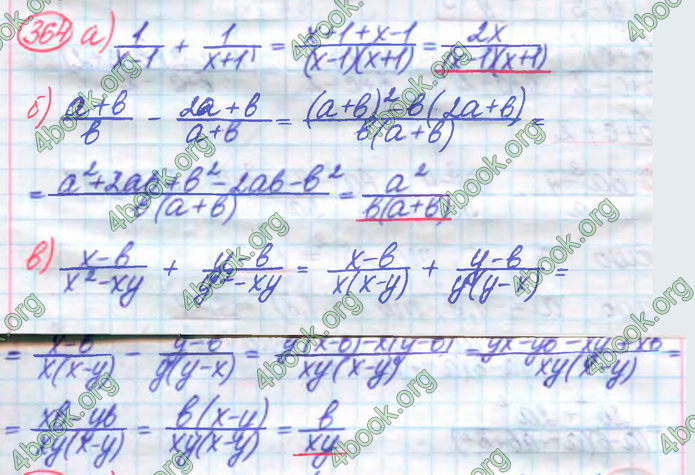 364 а) 1/(x-1) + 1/(x+1) = (x+1+x-1)/((x-1)(x+1)) = 2x/((x-1)(x+1))
б) (a+b)/b - (2a+b)/(a+b) = ((a+b)²-b(2a+b))/(b(a+b)) =
= (a²+2ab+b²-2ab-b²)/(b(a+b)) = a²/(b(a+b))
в) (x-b)/(x²-xy) + (y-b)/(y²-xy) = (x-b)/(x(x-y)) + (y-b)/(y(y-x)) =
= (x-b)/(x(x-y)) - (y-b)/(y(y-x)) = (y(x-b)-x(y-b))/(xy(x-y)) = (yx-yb-xy+xb)/(xy(x-y)) =
= (xb-yb)/(xy(x-y)) = b(x-y)/(xy(x-y)) = b/(xy)
4book.org